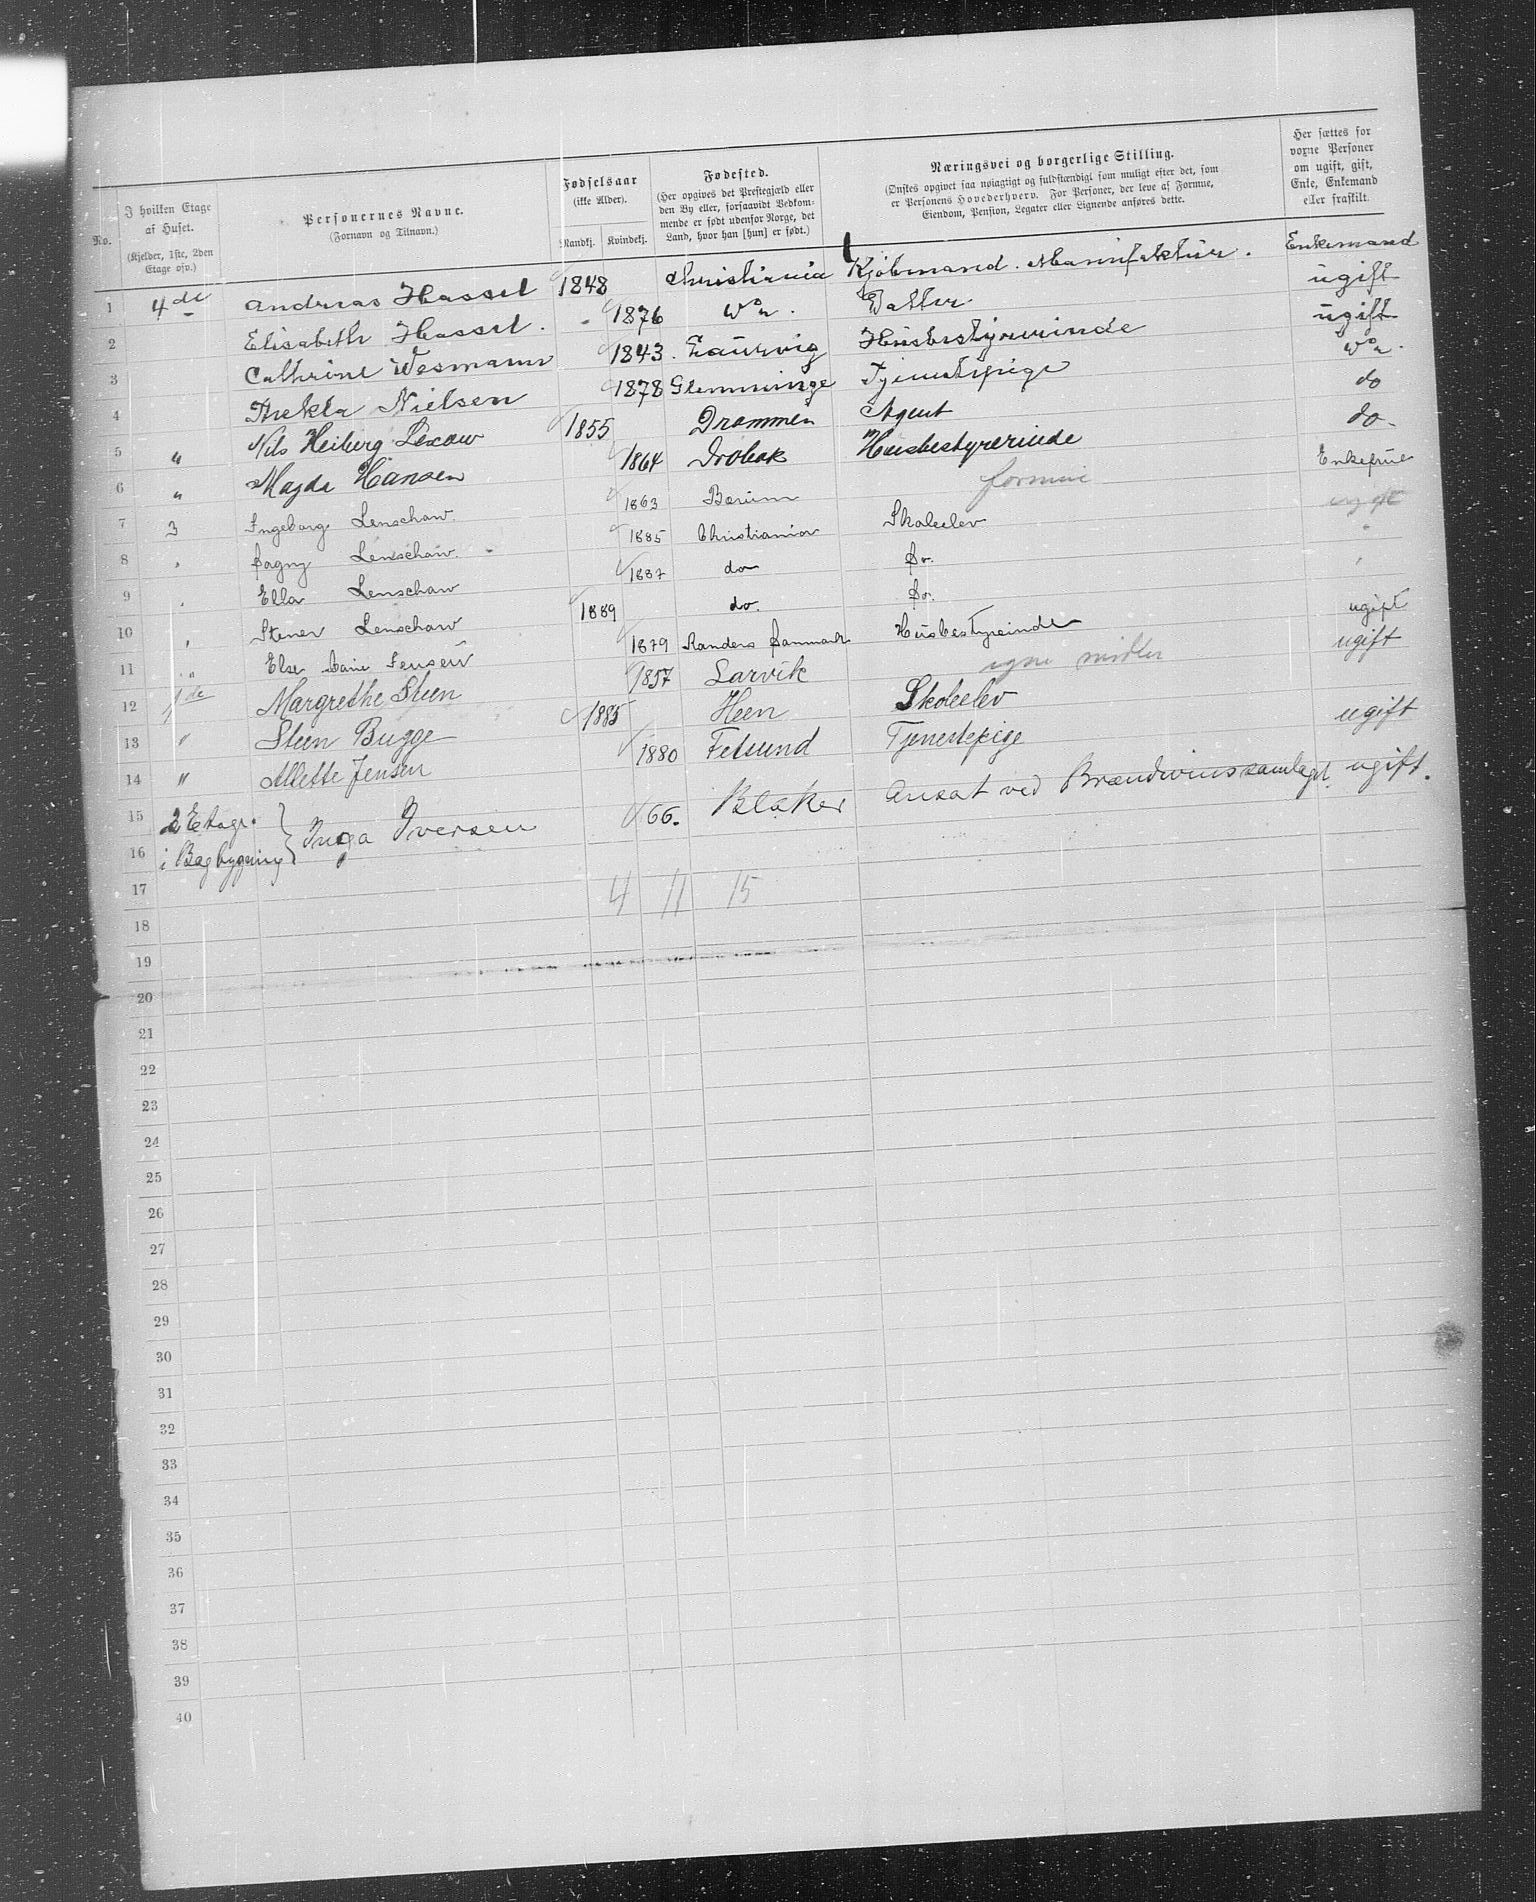 No. | I hvilken Etage af Huset. (Kjelder, 1ste, 2den Etage osv.) | Personernes Navne. (Fornavn og Tilnavn.) | Fødselsaar (ikke Alder). Mandkj. Kvindekj. | Fødested. (Her opgives det Prestegjæld eller den By eller, forsaavidt Vedkommende er født udenfor Norge, det Land, hvor han [hun] er født.) | Næringsvei og borgerlige Stilling. (Ønskes opgivet saa nøiagtigt og fuldstændigt som muligt efter det, som er Personens Hovederhverv. For Personer, der leve af Formue, Eiendom, Pension, Legater eller Lignende anføres dette. | Her sættes for voxne Personer om ugift, gift, Enke, Enkemand eller fraskilt.
1 4de Andreas Hassel 1848 Christiania Kjøbmand. Manufaktur. Enkemand
2 Elisabeth Hassel. 1876 Do. Datter ugift
3 Cathrine Wesmann 1843. Laurvig Husbestyrerinde ugift
4 Thekla Nielsen 1878 Glemminge Tjenestepige Do.
5 " Nils Heiberg Lexow 1855 Drammen Agent do
6 " Magda Hansen 1864 Drøbak Husbestyrerinde do.
7 3 Ingeborg Lenschow. 1863 Bærum formue Enkefrue
8 " Dagny Lenschow. 1885 Christiania Skoleelev ugift
9 " Ella Lenschow 1887 do Do. "
10 " Stener Lenschow 1889 do. Do.
11 " Else Marie Jensen 1879 Randers Danmark Husbestyreinde ugift
12 1de Margrethe Steen 1857 Larvik egne midler ugift
13 " Steen Bugge 1885 Heen Skoleelev
14 " Allette Jensen 1880 Fetsund Tjenestepige ugift
15 2 Etage. Inga Iversen 66. Blaker Ansat ved Brændevinssamlaget. ugift.
16 i Bagbygning
17 4 11 15
18
19
20
21
22
23
24
25
26
27
28
29
30
31
32
33
34
35
36
37
38
39
40